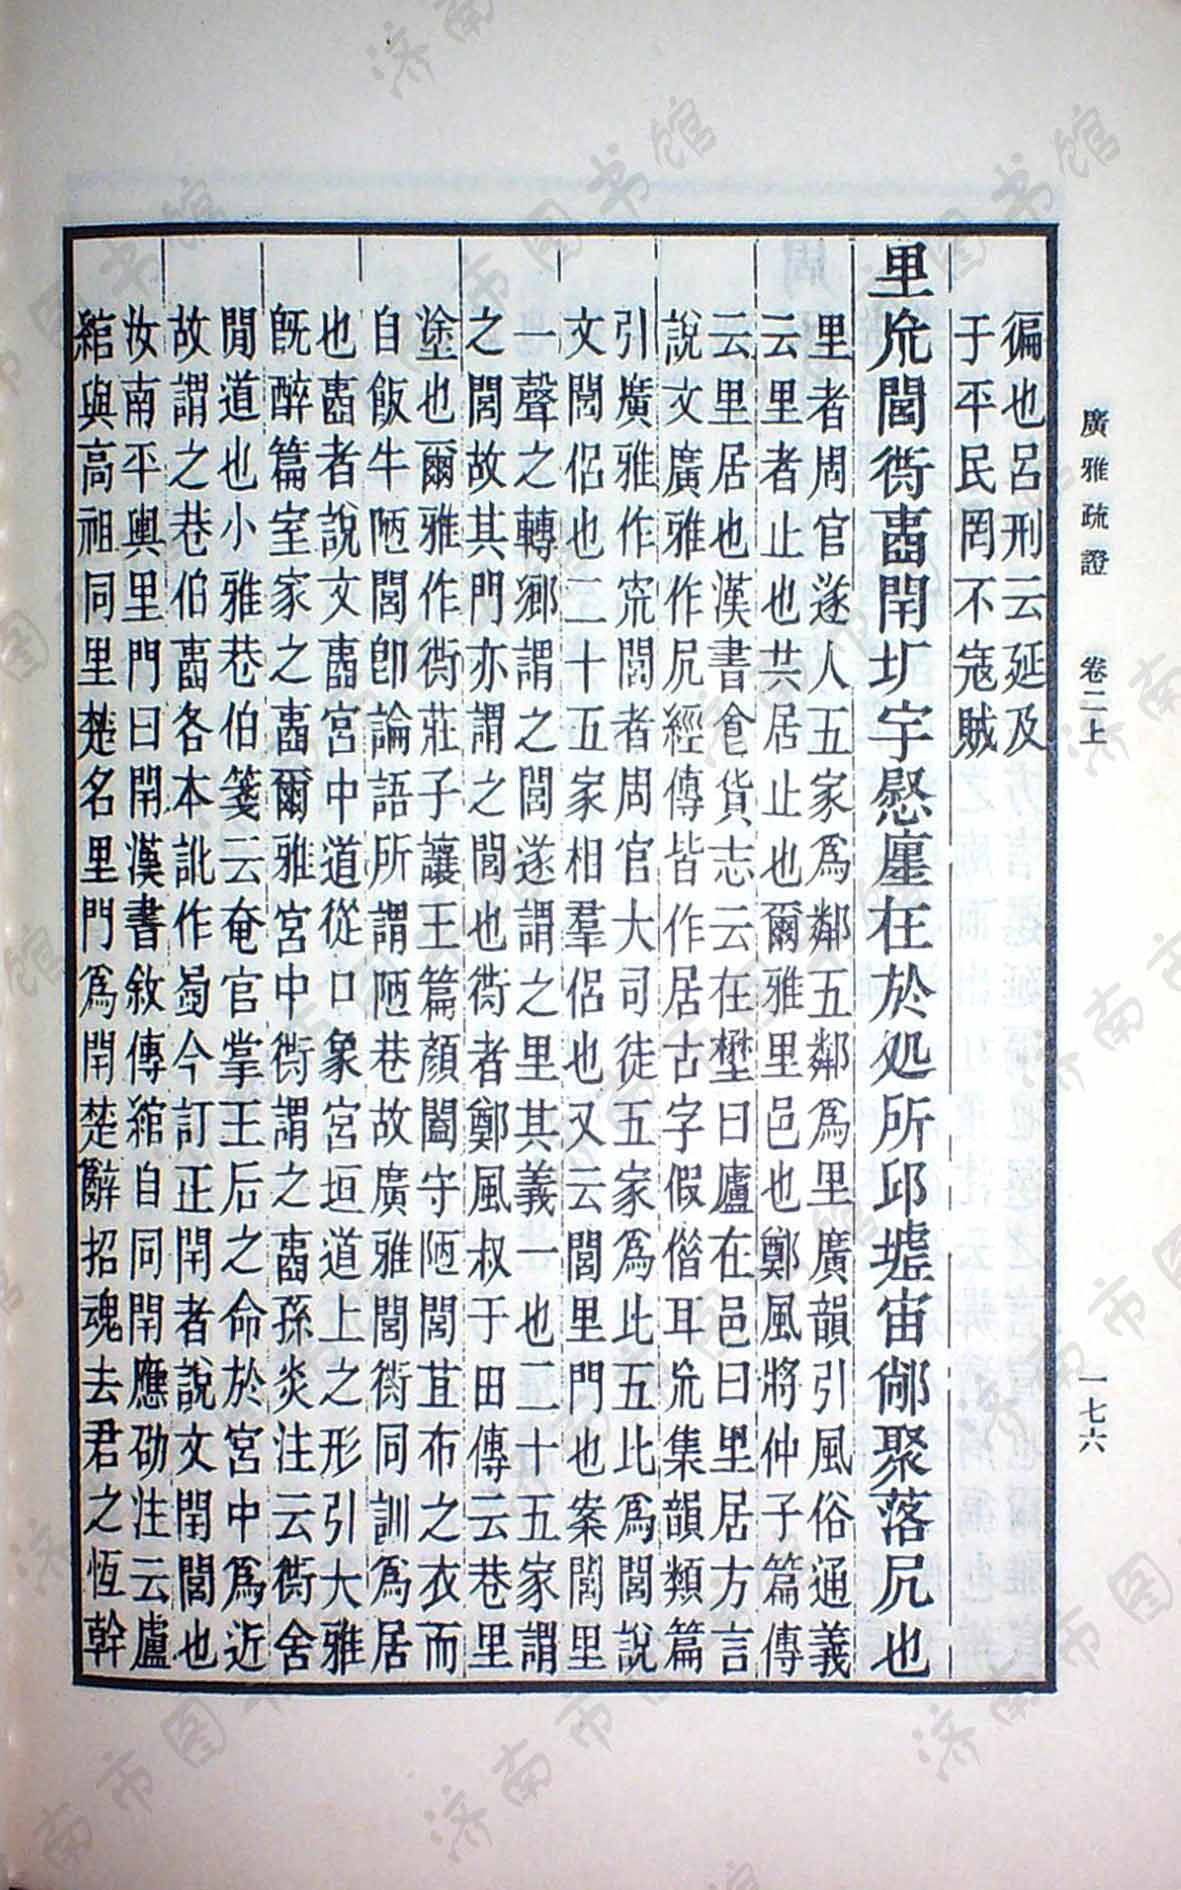 廣雅疏證　卷二上　一七六
徧也呂刑云延及
于平民罔不寇賊
里㡯閭衖𡇮閈圻宇慰廛在於処所邱墟宙鄃聚落凥也
里者周官遂人五家爲鄰五鄰爲里廣韻引風俗通義
云里者止也共居止也爾雅里邑也鄭風將仲子篇傳
云里居也漢書食貨志云在壄曰廬在邑曰里居方言
說文廣雅作凥經傳皆作居古字假借耳㡯集韻類篇
引廣雅作㝌閭者周官大司徒五家爲比五比爲閭說
文閭侶也二十五家相羣侶也又云閭里門也案閭里
一聲之轉鄉謂之閭遂謂之里其義一也二十五家謂
之閭故其門亦謂之閭也衖者鄭風叔于田傳云巷里
塗也爾雅作衖莊子讓王篇顏闔守陋閭苴布之衣而
自飯牛陋閭卽論語所謂陋巷故廣雅閭衖同訓爲居
也壼者說文壼宮中道從囗象宮垣道上之形引大雅
旣醉篇室家之壼爾雅宮中衖謂之壼孫炎注云衖舍
閒道也小雅巷伯箋云奄官掌王后之命於宮中爲近
故謂之巷伯壼各本訛作蜀今訂正閈者說文閈閭也
汝南平輿里門曰閈漢書敘傳綰自同閈應劭注云盧
綰與高祖同里楚名里門爲閈楚辭招魂去君之恆幹